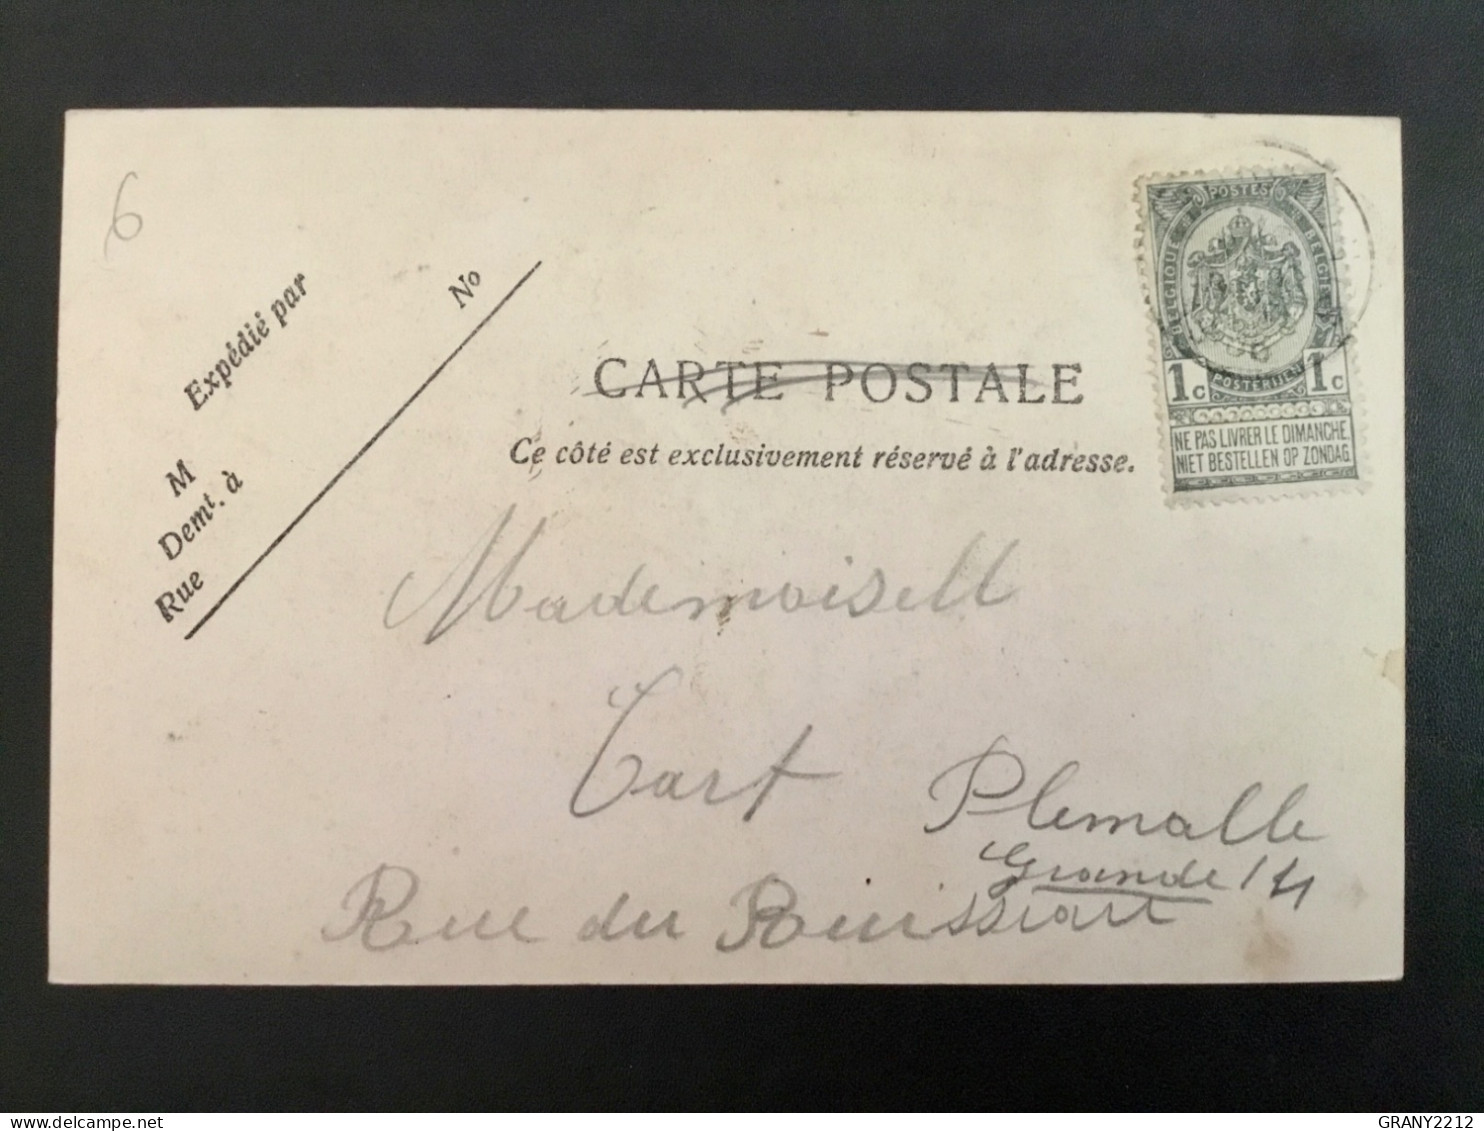 6
Expédié par
No
M
Demt. à
Rue
CARTE POSTALE
Ce côté est exclusivement réservé à l'adresse.
POSTES
BELGIQUE BELGIE
POSTERIJEN
1c 1c
NE PAS LIVRER LE DIMANCHE
NIET BESTELLEN OP ZONDAG
Mademoisell
Tart
Plemalle
Grande 14
Rue du Ruissiau
GRANY2212